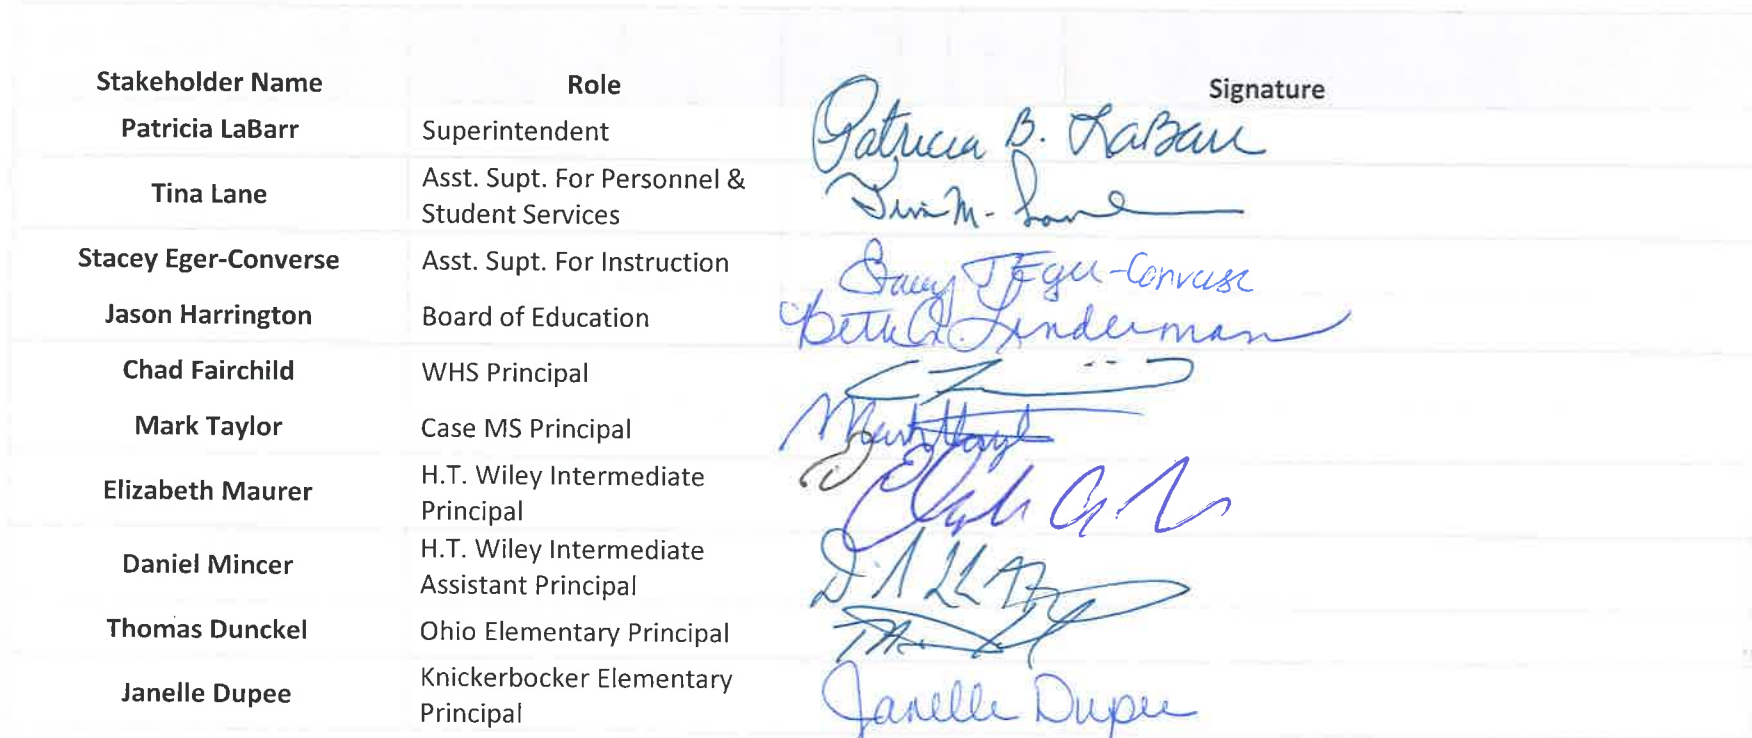 Stakeholder Name Role Signature
Patricia LaBarr Superintendent Patricia B. LaBarr
Tina Lane Asst. Supt. For Personnel &
Student Services Tina M. Lane
Stacey Eger-Converse Asst. Supt. For Instruction Stacey J Eger-Converse
Jason Harrington Board of Education Beth Linderman
Chad Fairchild WHS Principal
Mark Taylor Case MS Principal Mark Taylor
Elizabeth Maurer H.T. Wiley Intermediate
Principal
Daniel Mincer H.T. Wiley Intermediate
Assistant Principal
Thomas Dunckel Ohio Elementary Principal
Janelle Dupee Knickerbocker Elementary
Principal Janelle Dupee